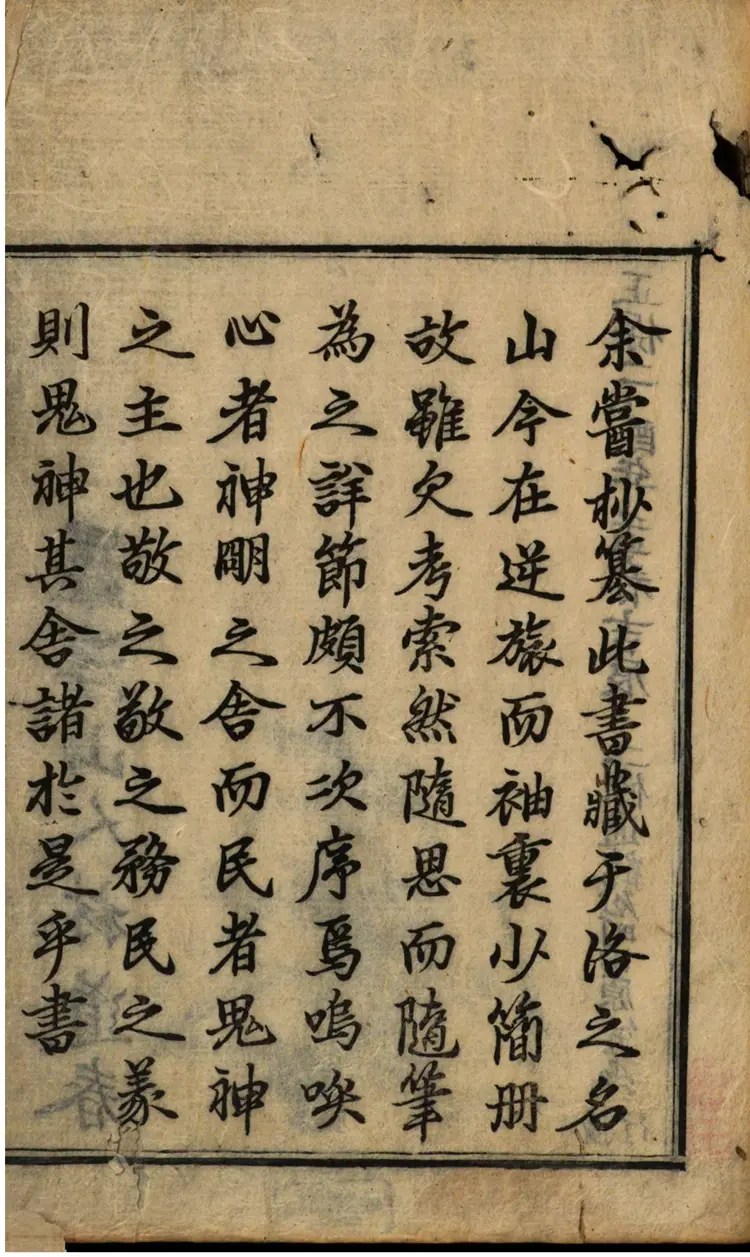 余嘗抄纂此書藏于洛之名
山今在逆旅而袖裏少簡冊
故雖欠考索然隨思而隨筆
為之詳節頗不次序焉嗚唉
心者神明之舎而民者鬼神
之主也敬之敬之務民之義
則鬼神其舎諸於是乎書